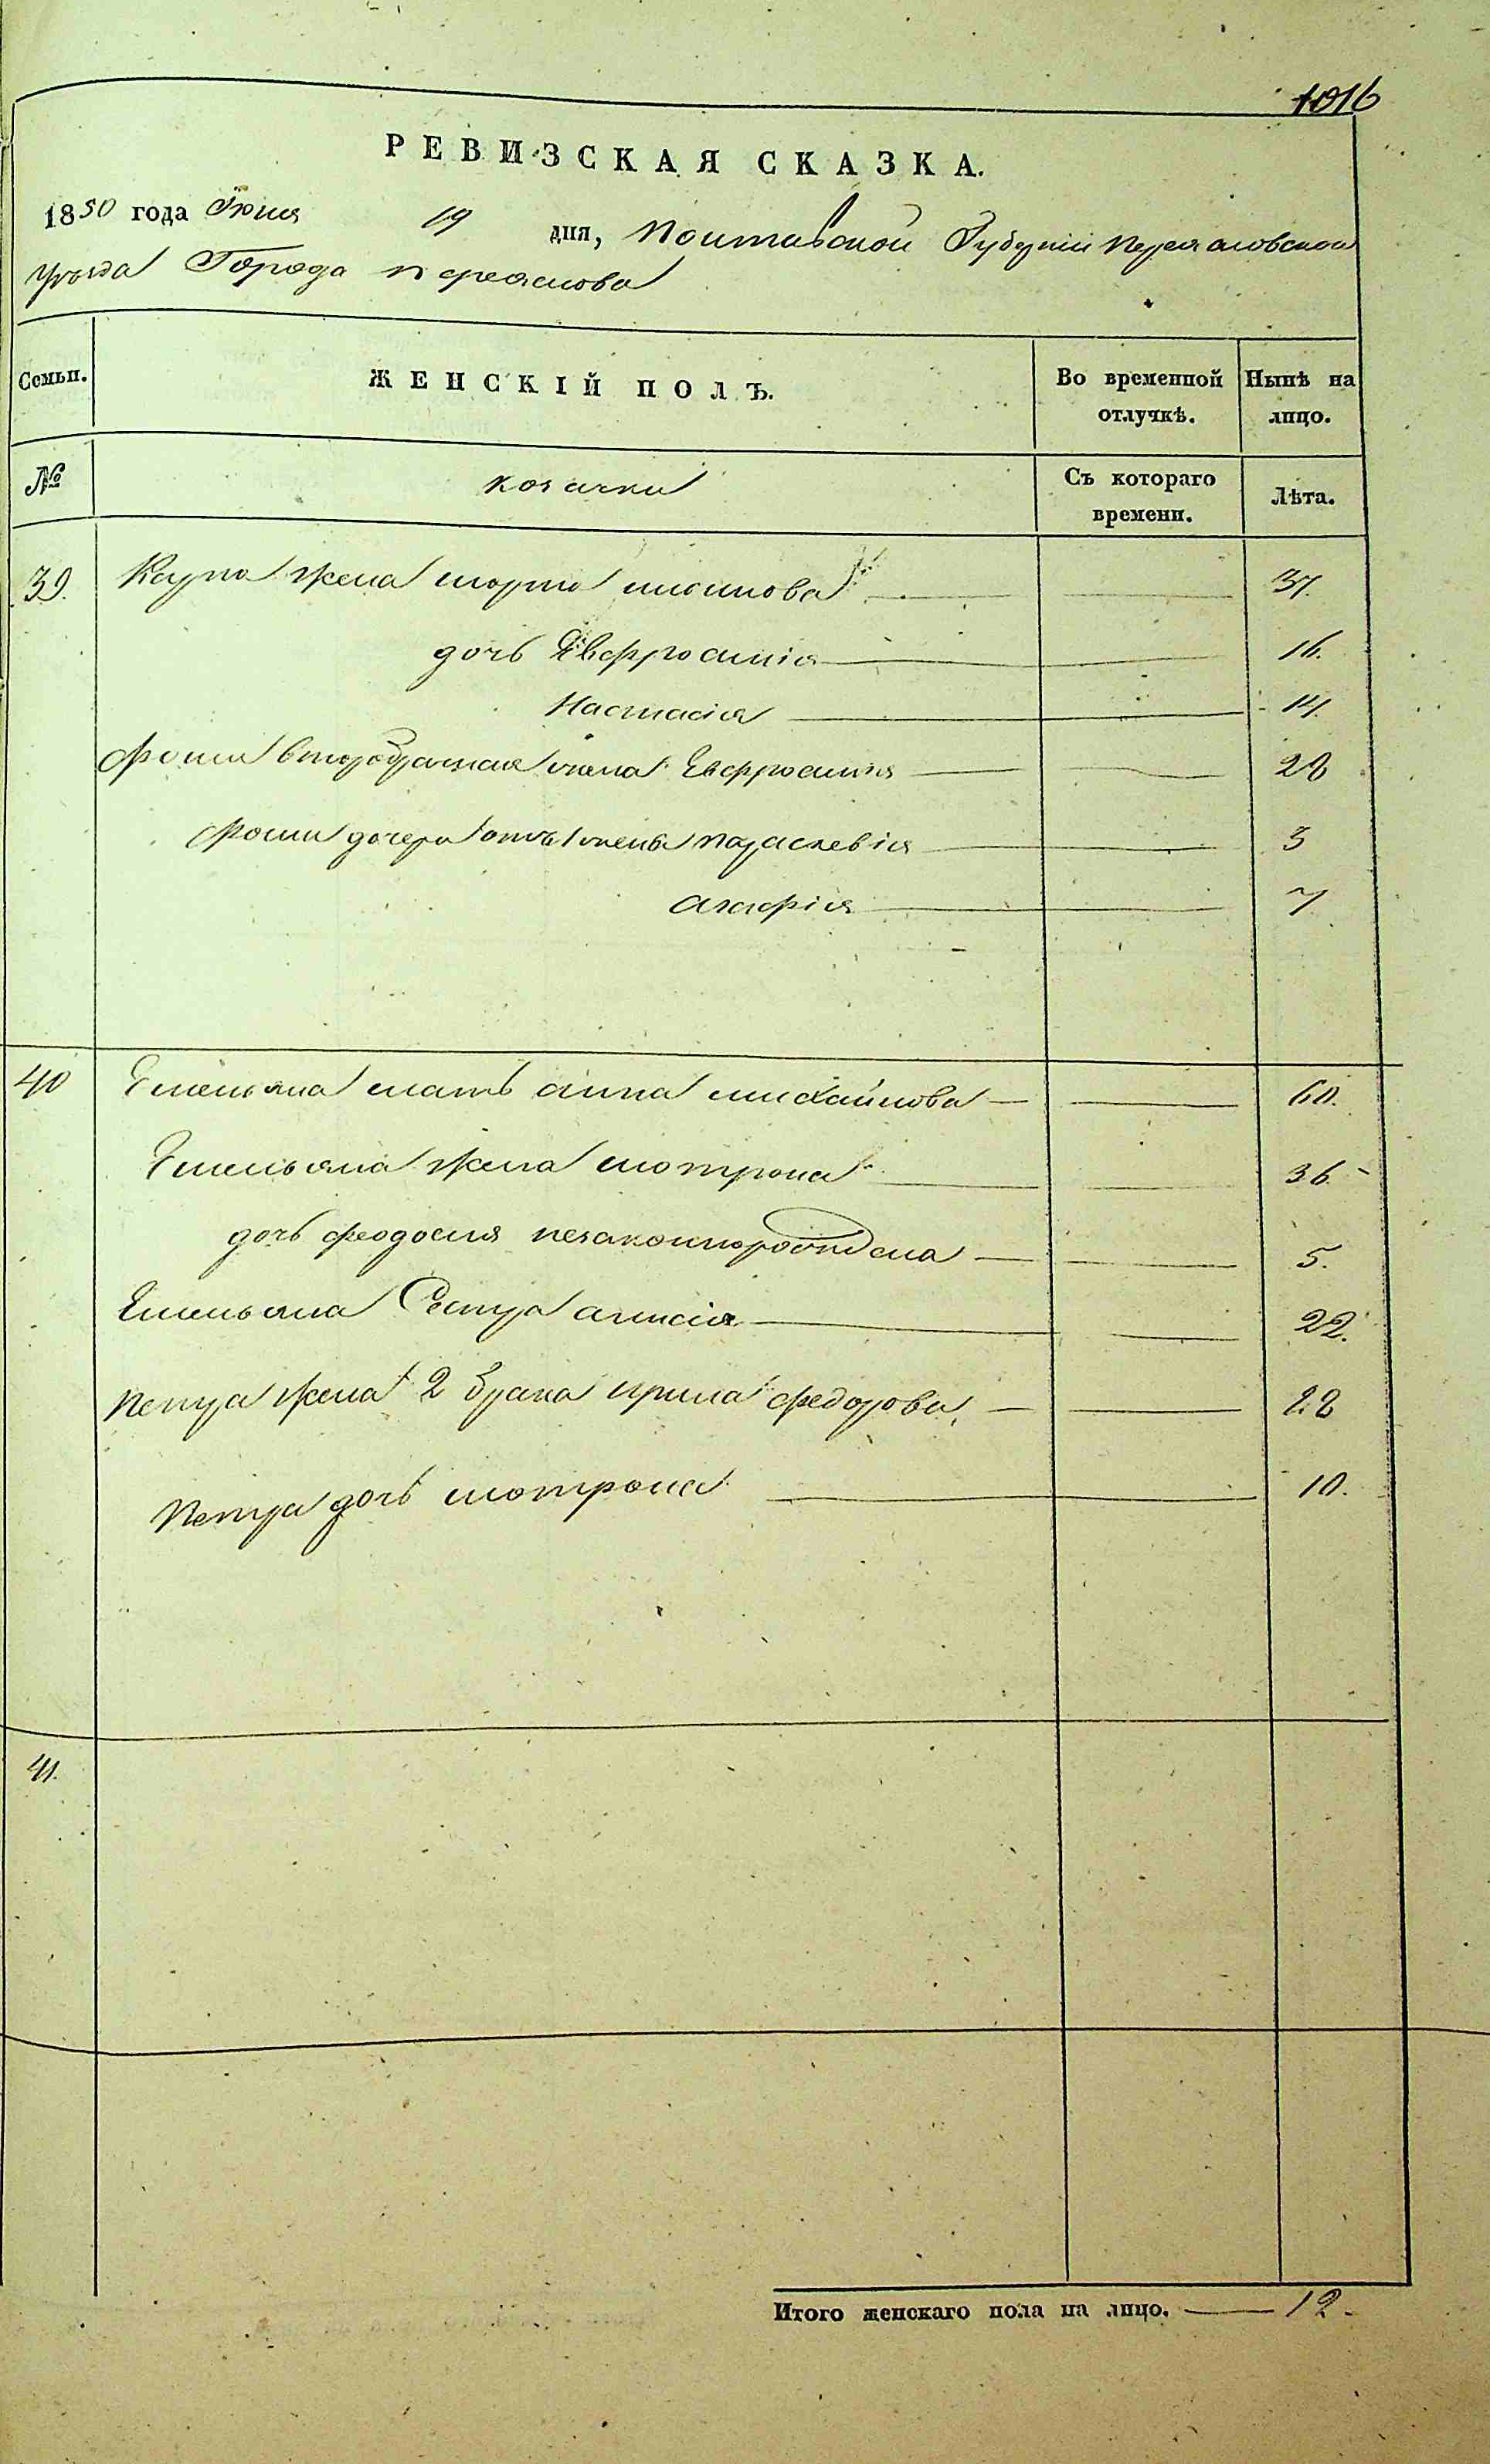 1016
РЕВИЗСКАЯ СКАЗКА.
1850 года Июня 19 дня, Полтавской Губерніи Переяловской
уѣзда Города переяслова
Семьи. ЖЕНСКІЙ ПОЛЪ. Во временной отлучкѣ. Нынѣ на лицо.
№ козачки Съ котораго времени. Лѣта.
39. Карпа жена марта 37.
дочь Евфросинія 16.
Настасія 14.
Фомы жена Евфросинія 28
Фомы дочери отъ Параскевія 3
агафія 7
40 Емельяна мать анна михайлова 60.
Емельяна жена мотрона 36.
дочь феодосия незаконнорожденна 5.
Емельяна Сестра анисія 22.
Петра жена 2 брака ирина федорова 28
Петра дочь мотрона 10.
41.
Итого женскаго пола на лицо. 12.